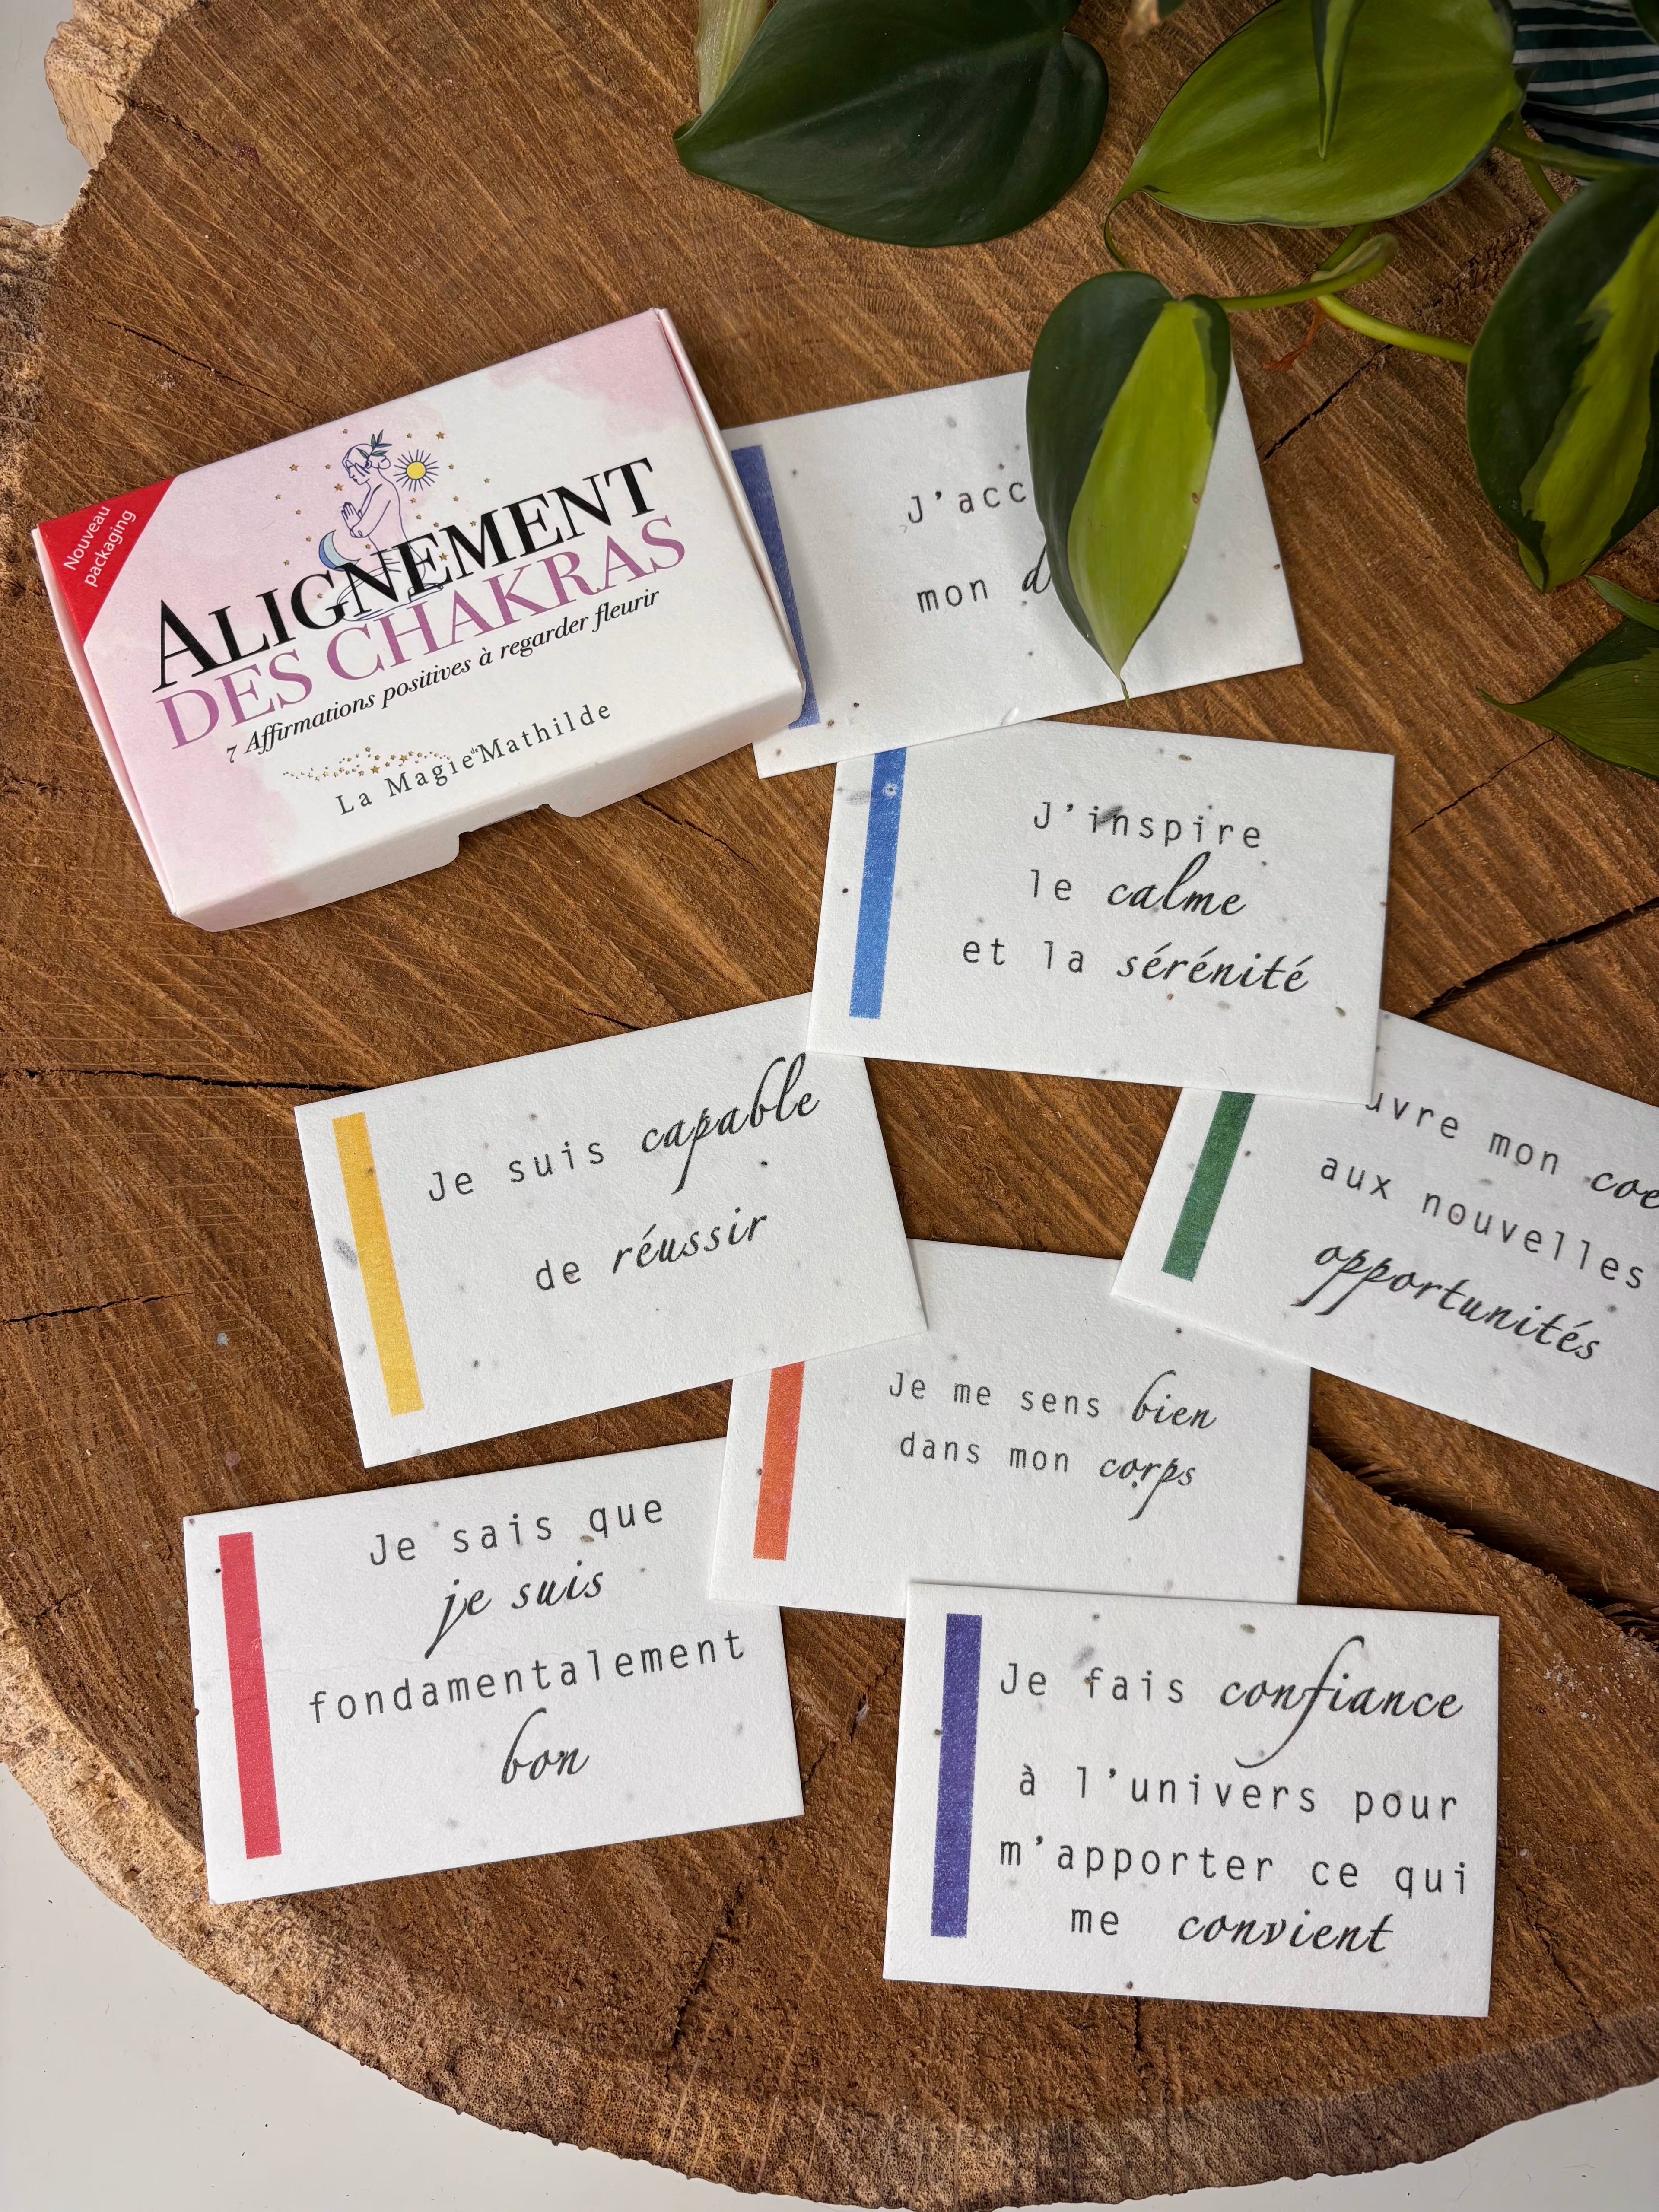 Nouveau
packaging
ALIGNEMENT
DES CHAKRAS
7 Affirmations positives à regarder fleurir
La Magie de Mathilde
J'acc
mon d
J'inspire
le calme
et la sérénité
uvre mon coe
aux nouvelles
opportunités
Je suis capable
de réussir
Je me sens bien
dans mon corps
Je sais que
je suis
fondamentalement
bon
Je fais confiance
à l'univers pour
m'apporter ce qui
me convient